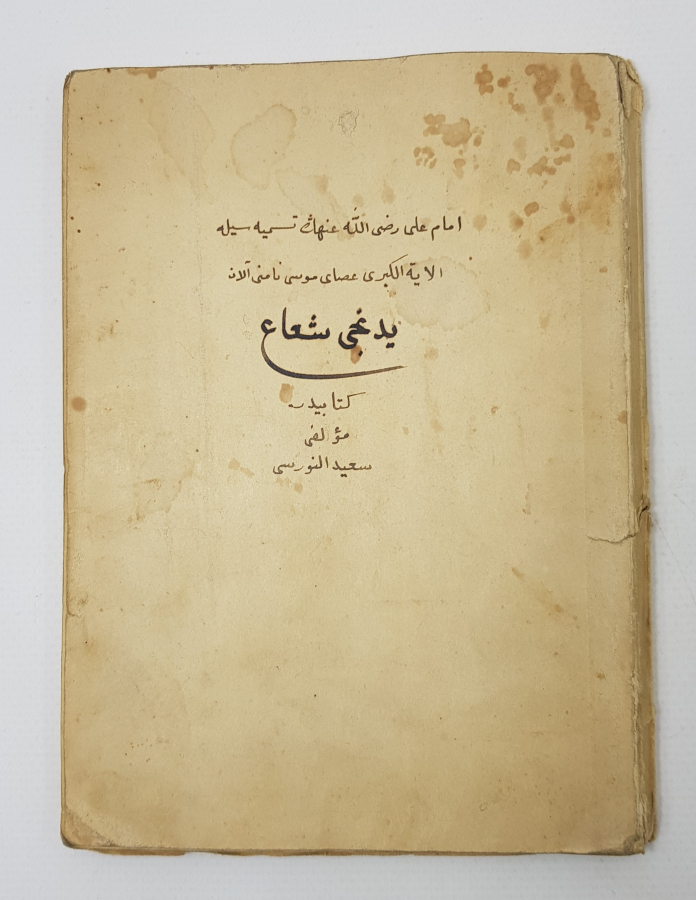 امام علی رضی الله عنهڭ تسمیه سیله
الایة الكبری عصای موسی نامنی آلان
یدنجی شعاع
كتابیدر
مؤلفی
سعید النورسی